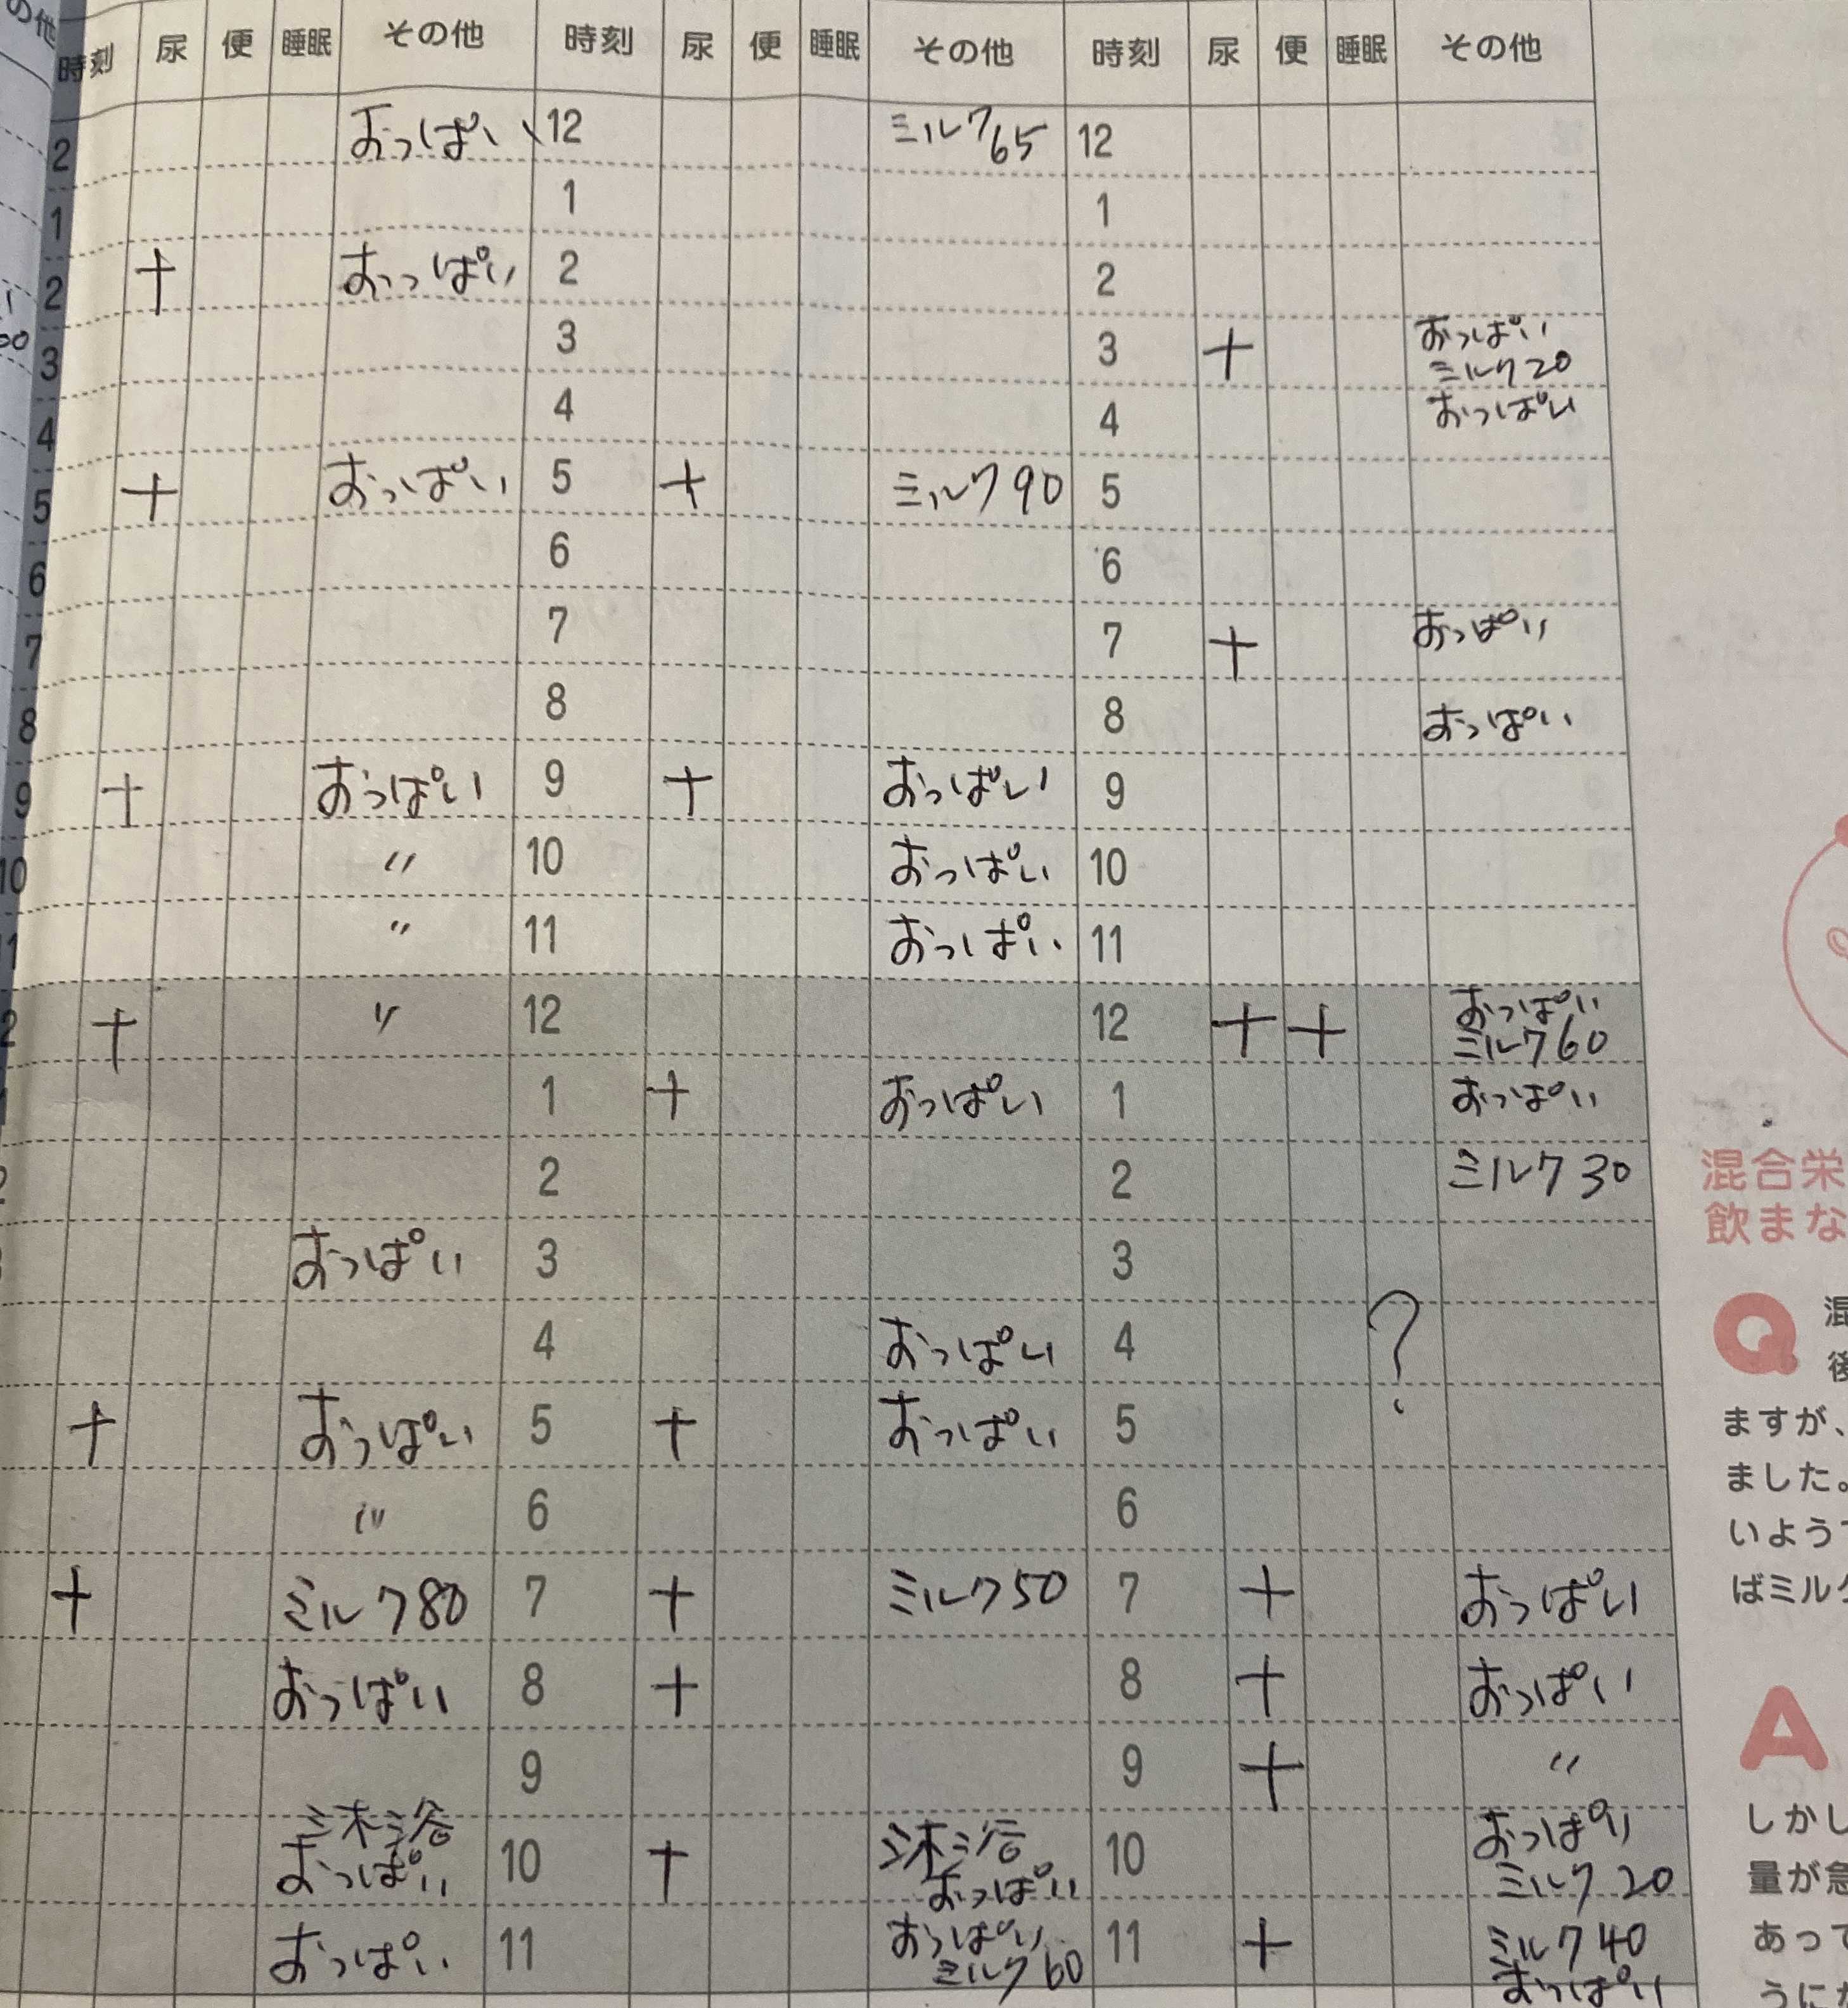 の他
時刻 尿 便 睡眠 その他 時刻 尿 便 睡眠 その他 時刻 尿 便 睡眠 その他
2 おっぱい 12 ミルク65 12
1 1 1
2 + おっぱい 2 2
3 3 3 + おっぱい
ミルク20
4 4 4 おっぱい
5 + おっぱい 5 + ミルク90 5
6 6 6
7 7 7 + おっぱい
8 8 8 おっぱい
9 + おっぱい 9 + おっぱい 9
10 〃 10 おっぱい 10
11 〃 11 おっぱい 11
2 + 〃 12 12 + + おっぱい
ミルク60
1 1 + おっぱい 1 おっぱい
2 2 2 ミルク30
おっぱい 3 3
4 おっぱい 4 ?
+ おっぱい 5 + おっぱい 5
〃 6 6
+ ミルク80 7 + ミルク50 7 + おっぱい
おっぱい 8 + 8 + おっぱい
9 9 + 〃
沐浴
おっぱい 10 + 沐浴
おっぱい 10 おっぱい
ミルク20
おっぱい 11 おっぱい
ミルク60 11 + ミルク40
おっぱい
混合栄
飲まな
Q 混
後
ますが、
ました。
いよう
ばミルク
A
しかし
量が急
あって
うに